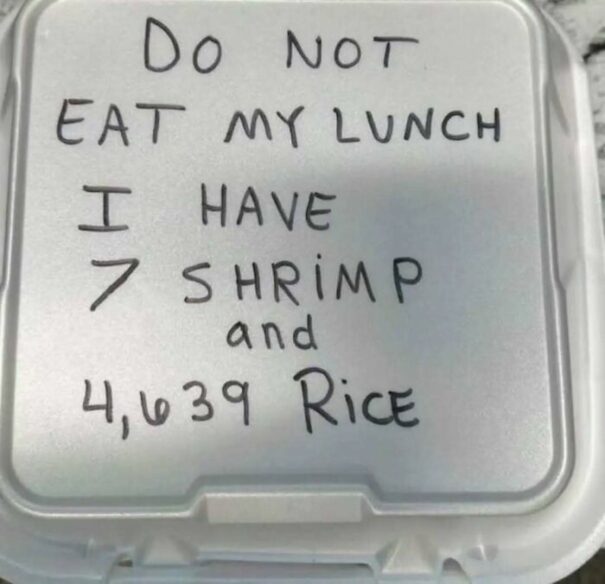 DO NOT
EAT MY LUNCH
I HAVE
7 SHRiMP
and
4,639 RiCE